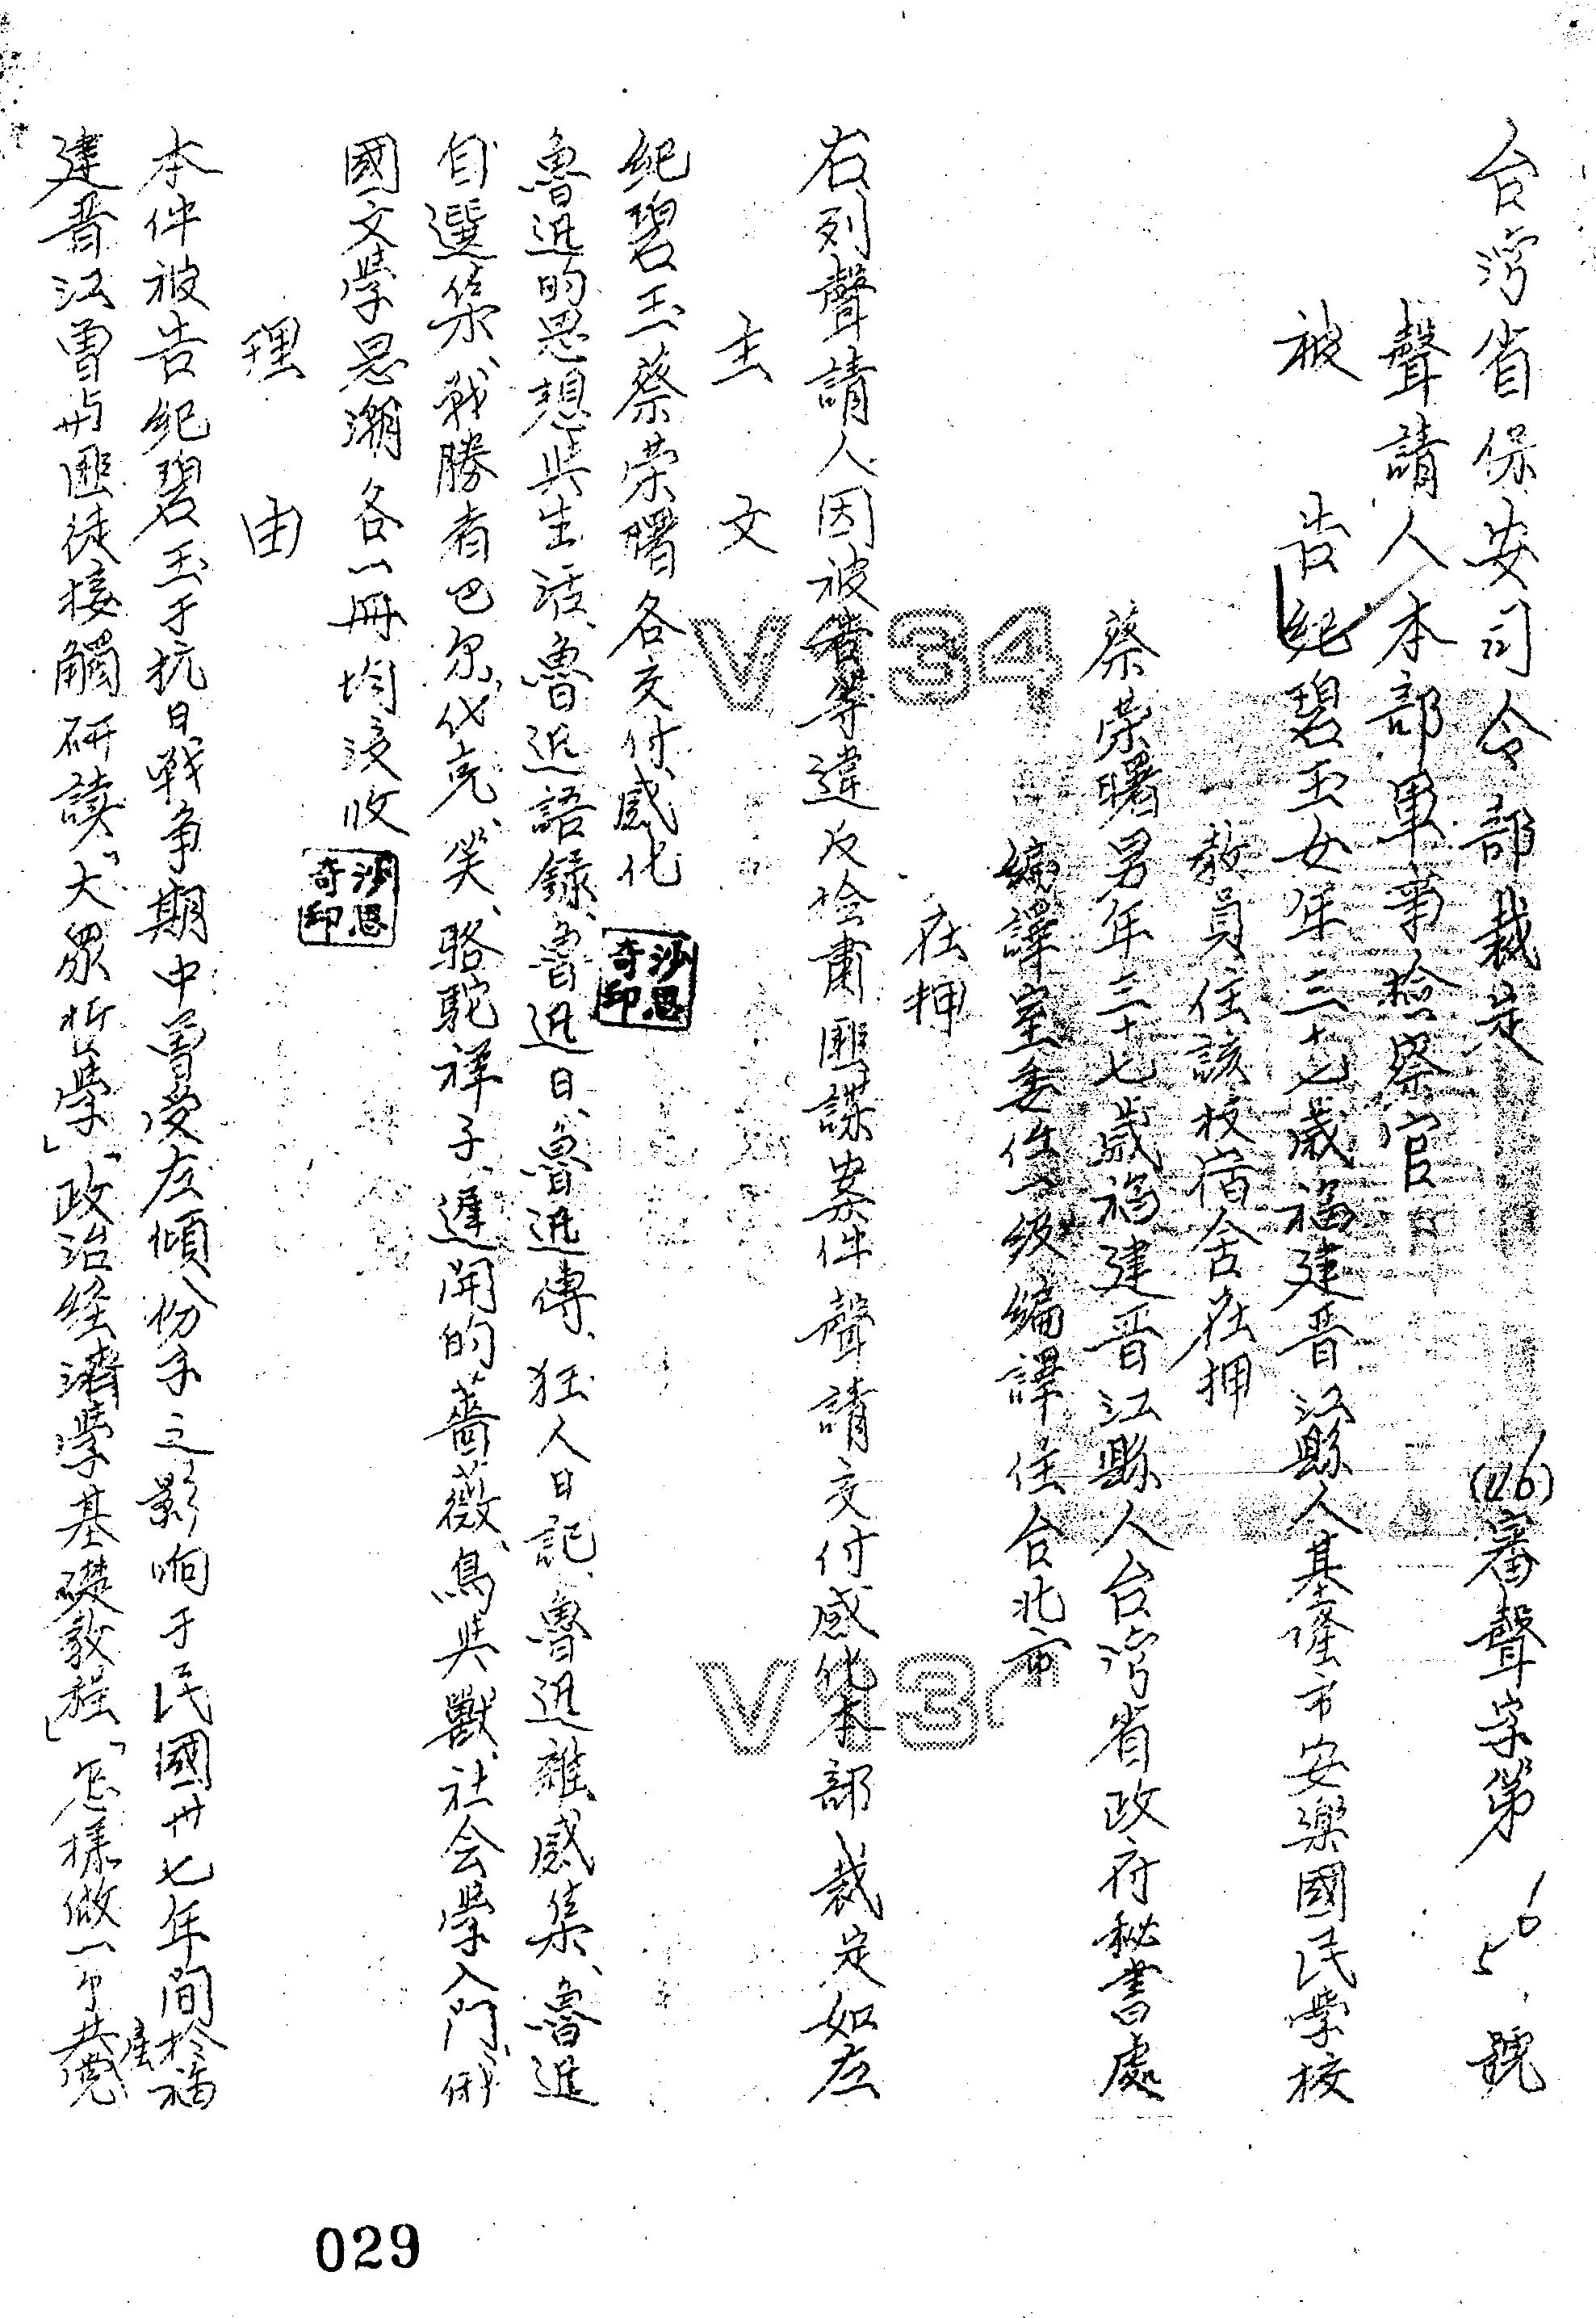 台湾省保安司令部裁定 (46)審聲字第 165 號
聲請人本部軍事檢察官
被告紀碧玉女年三十七歲福建晋江縣人基隆市安樂國民學校
教員住該校宿舍在押
蔡荣曙男年三十七歲福建晋江縣人台湾省政府秘書處
編譯室委任一級編譯住台北市
在押
右列聲請人因被告等違反檢肅匪諜案件聲請交付感化本部裁定如左
主文
紀碧玉蔡荣曙各交付感化
沙思奇印
魯迅的思想與生活、魯迅語録、魯迅日、魯迅傳、狂人日記、魯迅雜感集、魯迅
自選集、戰勝者巴尔代克、笑、駱駝祥子、遲開的薔薇、鳥與獸、社会學入門、俄
國文學思潮各一冊均没收
沙思奇印
理由
本件被告紀碧玉于抗日戰争期中曾受左傾份子之影响于民國卅七年間於福
建晋江曾与匪徒接觸研讀「大眾哲學」「政治经濟學基礎教程」「怎樣做一个共產党
V 34
V 134
029